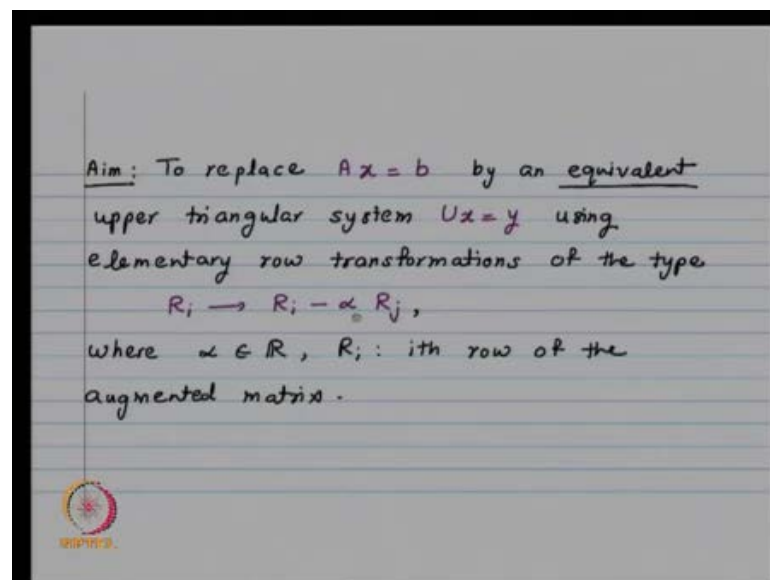 Aim: To replace Ax = b by an equivalent
upper triangular system Ux = y using
elementary row transformations of the type
Ri → Ri - α Rj,
where α ∈ ℝ, Ri : ith row of the
augmented matrix.
NPTEL